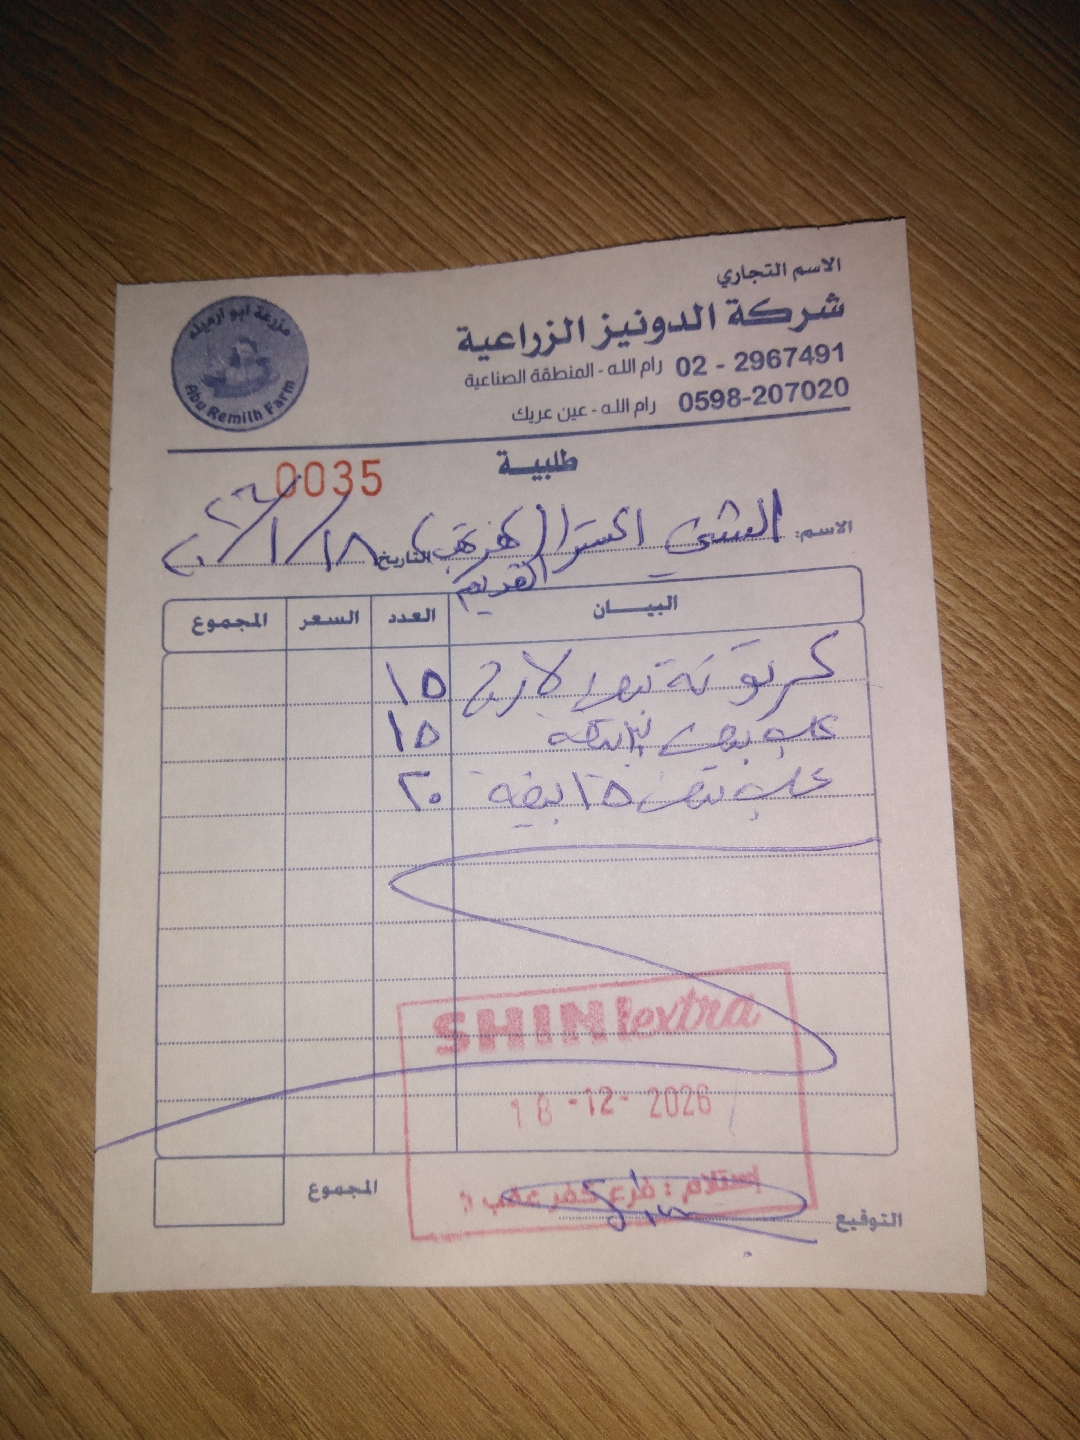 الاسم التجاري
شركة الدونيز الزراعية
رام الله - المنطقة الصناعية 02 - 2967491
رام الله - عين عريك 0598-207020
مزرعة ابو ارميله
Abu Remilh Farm
طلبية
0035
الاسم: الشني اكسترا (كفر عقب) التاريخ ١٨/١/٢٠٢٦
القديم
البيــــان العدد السعر المجموع
كرتونة بيض لارج ١٥
علب بيض بيضة ١٥
علب بيض ١٥ بيضة ٢٠
SHINI extra
18 -12- 2026
إستلام : فرع كفر عقب
المجموع
التوقيع